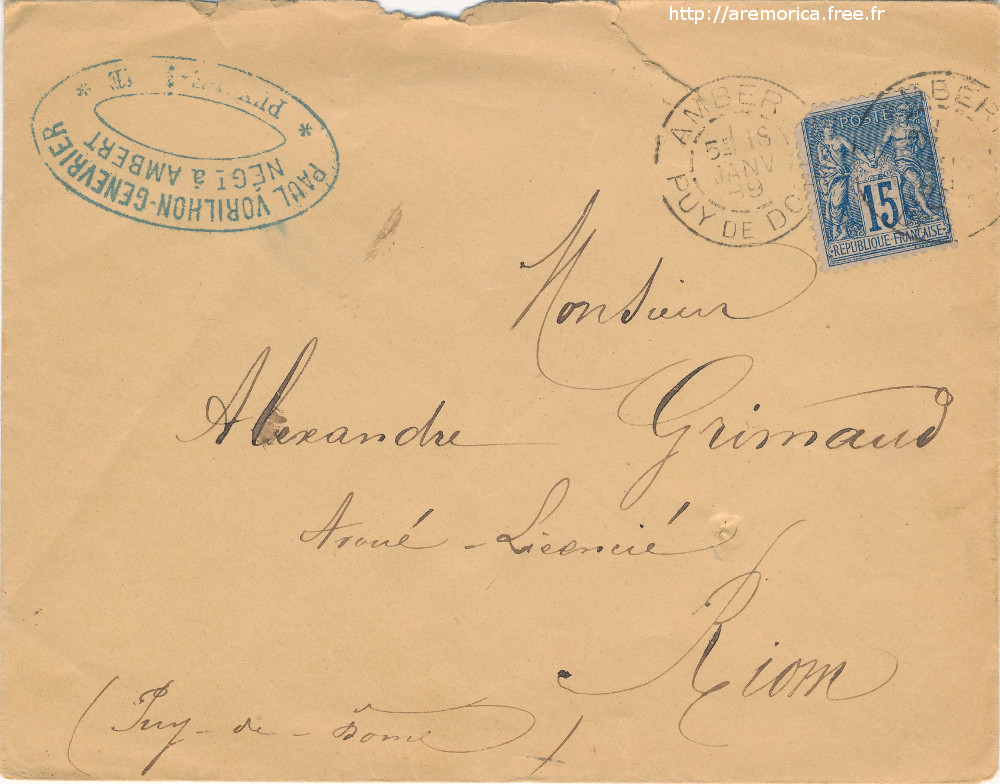 http://aremorica.free.fr
PAUL VORILHON-GENEVRIER
NÉGT à AMBERT
* *
AMBER
18
JANV
PUY DE DO
BER
POSTE
15
REPUBLIQUE FRANÇAISE
Monsieur
Alexandre Grimaud
Avoué - Licencié
Riom
(Puy-de-Dome)